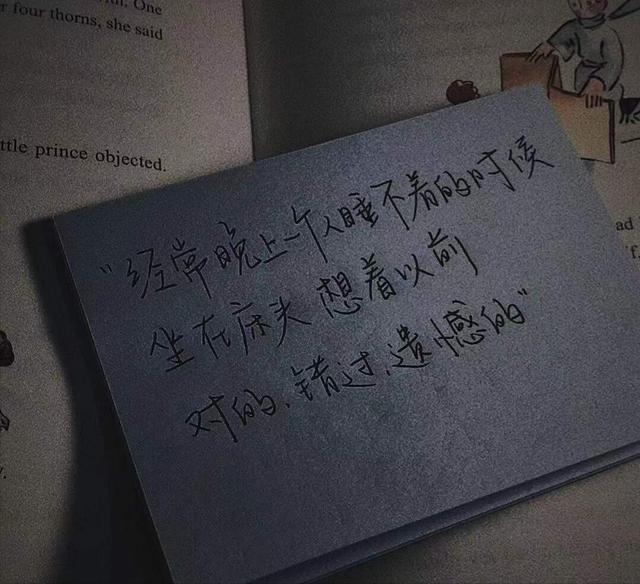 One
r four thorns, she said
ttle prince objected.
"经常晚上一个人睡不着的时候
坐在床头 想着以前
对的、错过、遗憾的"
ad
f.
y.